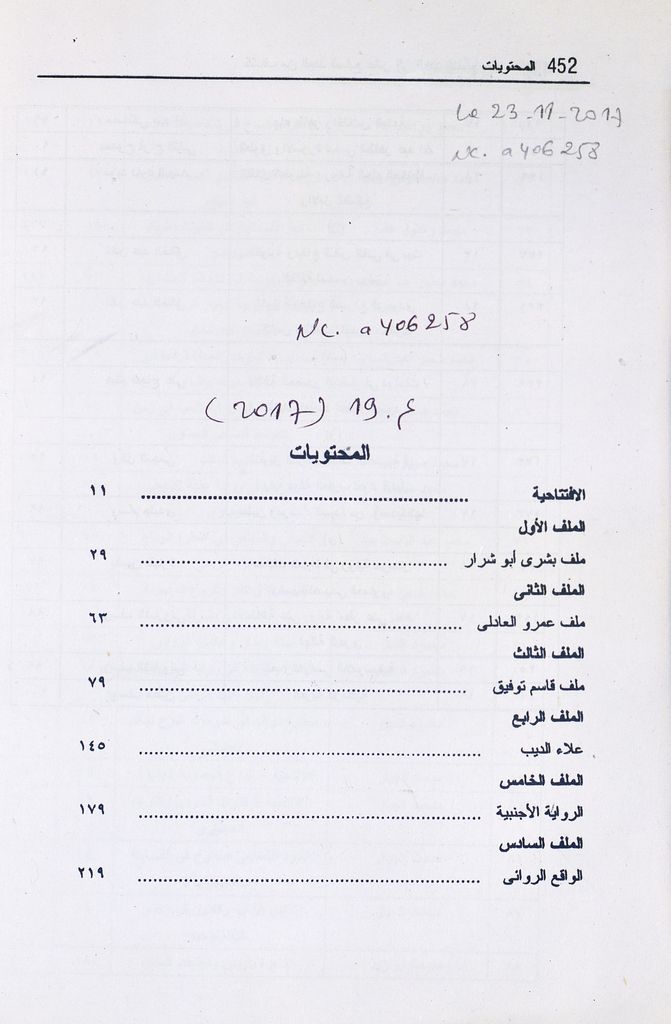 452 المحتويات
Le 23-11-2017
NC. a406258
NC. a406258
ع. 19 (2017)
المحتويات
الافتتاحية ................ ١١
الملف الأول
ملف بشرى أبو شرار ................ ٢٩
الملف الثانى
ملف عمرو العادلى ................ ٦٣
الملف الثالث
ملف قاسم توفيق ................ ٧٩
الملف الرابع
علاء الديب ................ ١٤٥
الملف الخامس
الرواية الأجنبية ................ ١٧٩
الملف السادس
الواقع الروائى ................ ٢١٩